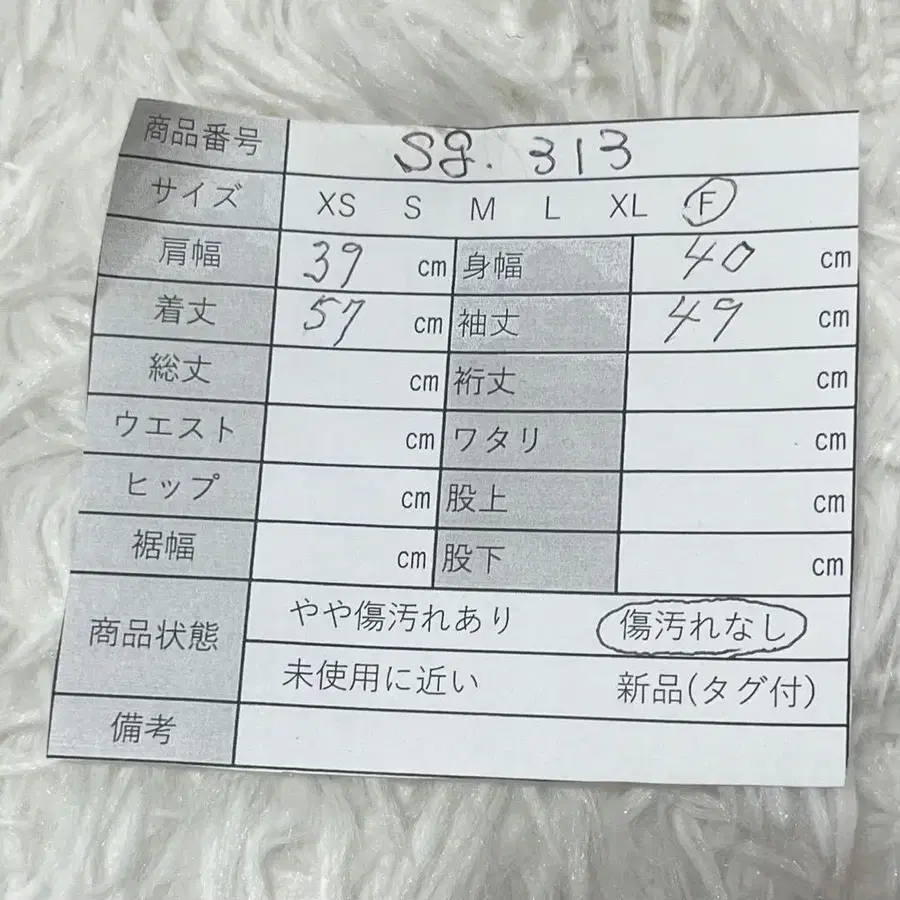 商品番号 Sg. 313
サイズ XS S M L XL F
肩幅 39 cm 身幅 40 cm
着丈 57 cm 袖丈 49 cm
総丈 cm 裄丈 cm
ウエスト cm ワタリ cm
ヒップ cm 股上 cm
裾幅 cm 股下 cm
商品状態 やや傷汚れあり 傷汚れなし
未使用に近い 新品(タグ付)
備考